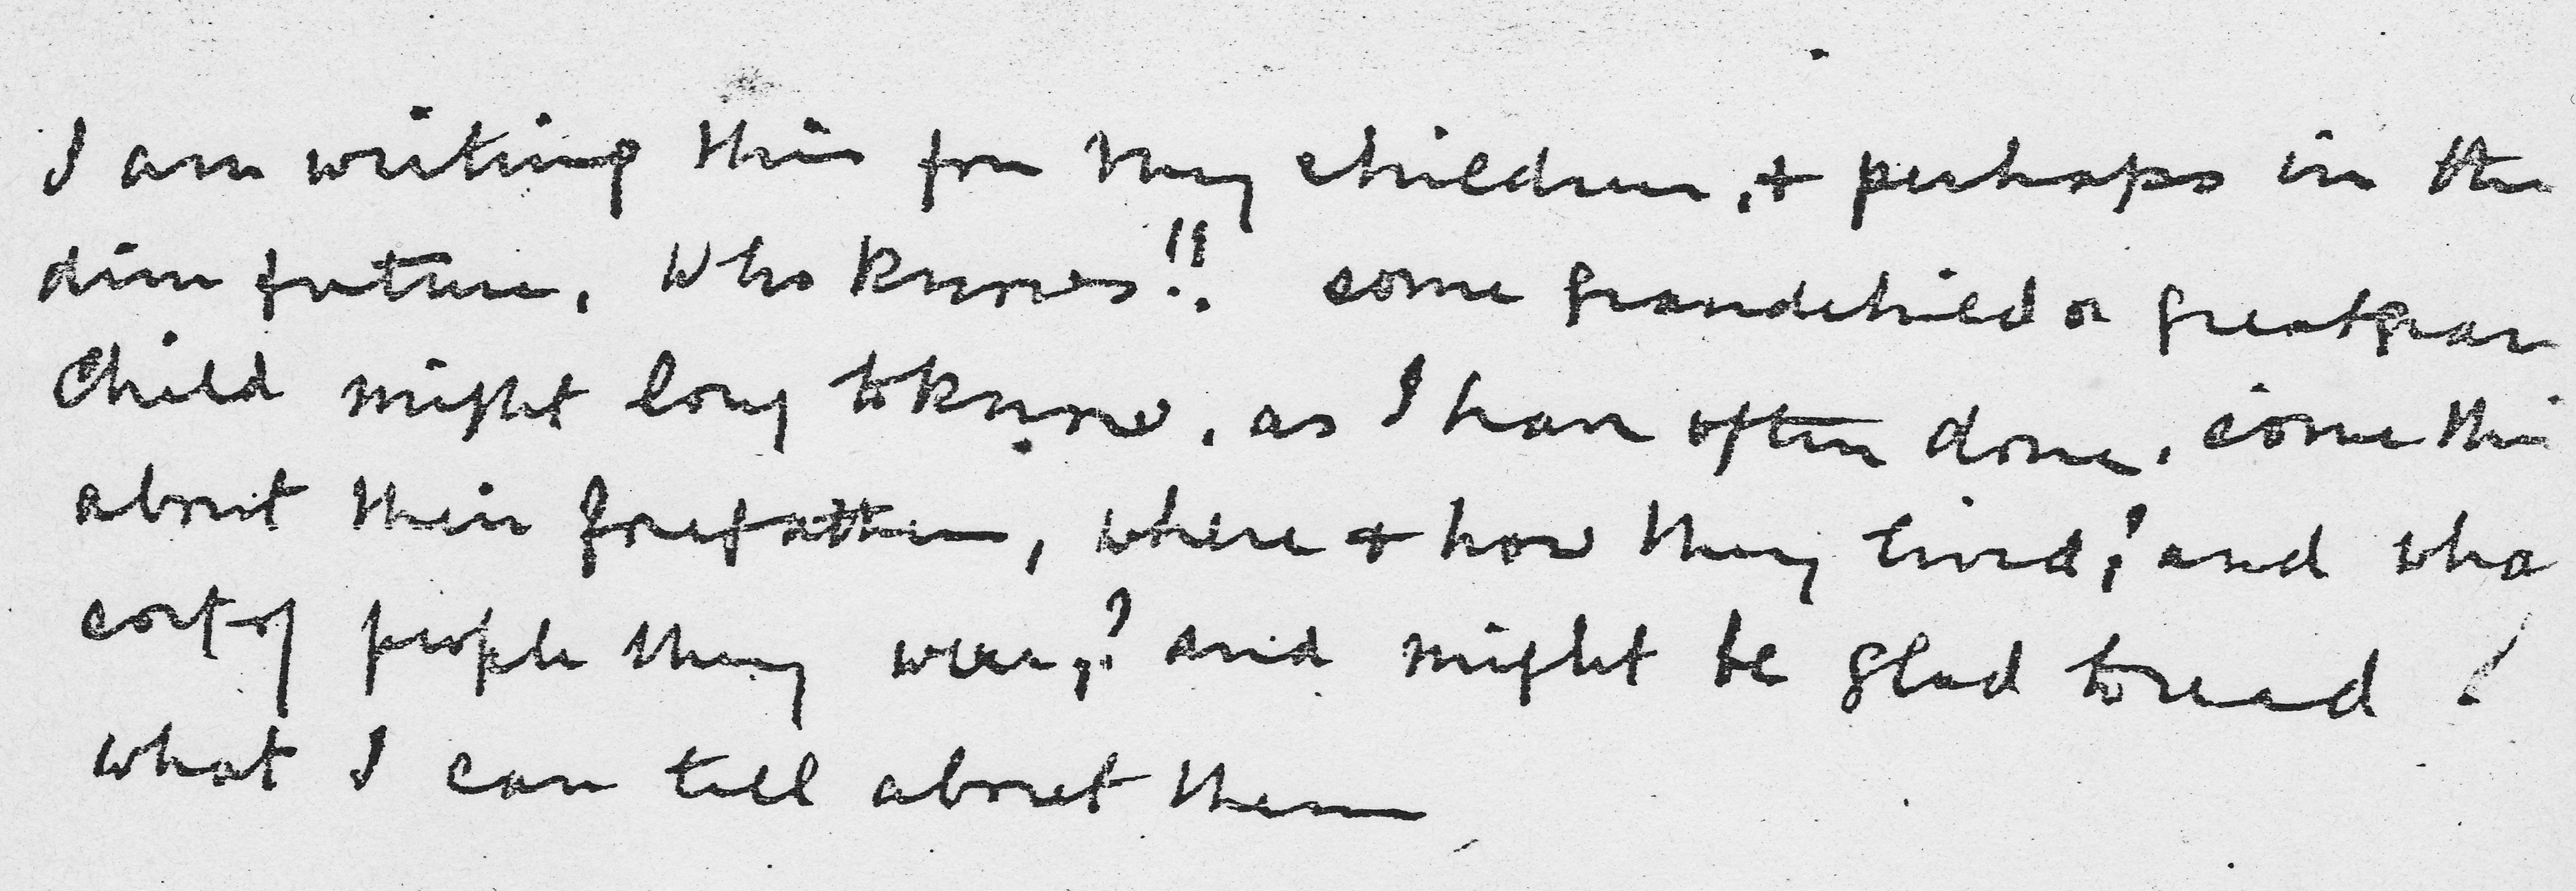 I am writing this for my children, & perhaps in the
dim future, who knows!! some grandchild or greatgran
child might long to know, as I have often done, some thi
about their forefathers, where & how they lived,? and wha
sort of people they were,? and might be glad to read !
what I can tell about them